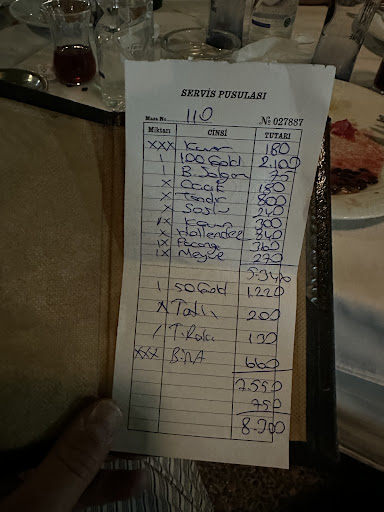 SERVİS PUSULASI
Masa No 110 № 027887
Miktarı CİNSİ TUTARI
XXX Kuver 180
1 100 Gold 2.100
1 B. Şalgam 75
X 180
X Tandır 800
X Soslu 240
1X 300
X Hellender 840
1X Paçanga 360
1X Meyve 270
5.340
1 50 Gold 1.220
X Tatlı 200
1 T. Rakı 130
XXX BİRA 660
7.550
750
8.300